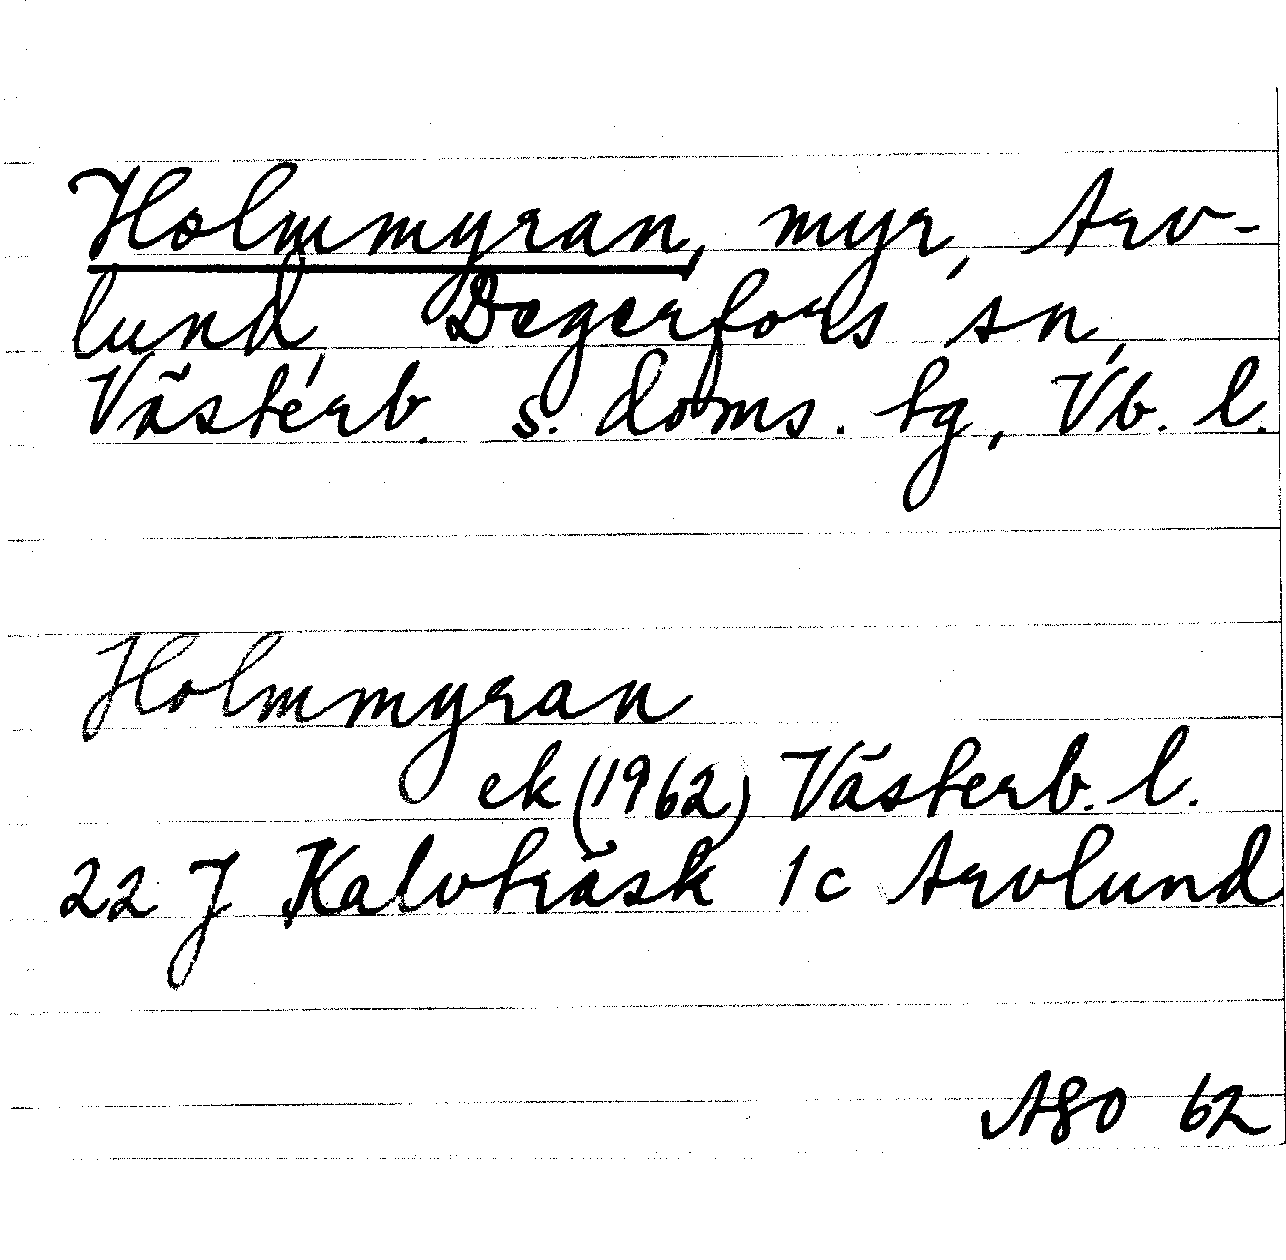 Holmmyran, myr, Arv-
lund, Degerfors sn,
Västerb. s. doms. tg, Vb. l.
Holmmyran
ek (1962) Västerb. l.
22 J Kalvträsk 1c Arvlund
ASO 62